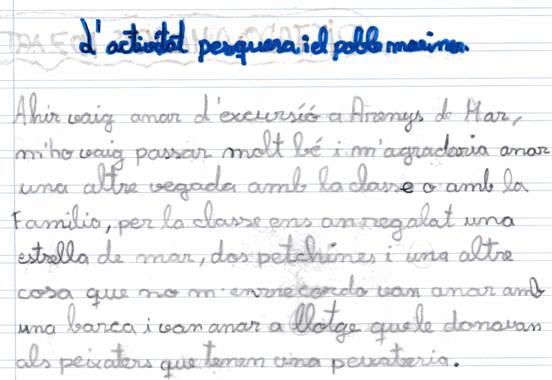 d'activitat pesquera i el poble mariner.
Ahir vaig anar d'excursió a Arenys de Mar,
m'ho vaig passar molt bé i m'agradaria anar
una altre vegada amb la classe o amb la
Familia, per la classe ens an regalat una
estrella de mar, dos petchines i una altre
cosa que no m'enrrecordo van anar amb
una barca i van anar a llotge que le donavan
als peixaters que tenem una peixateria.